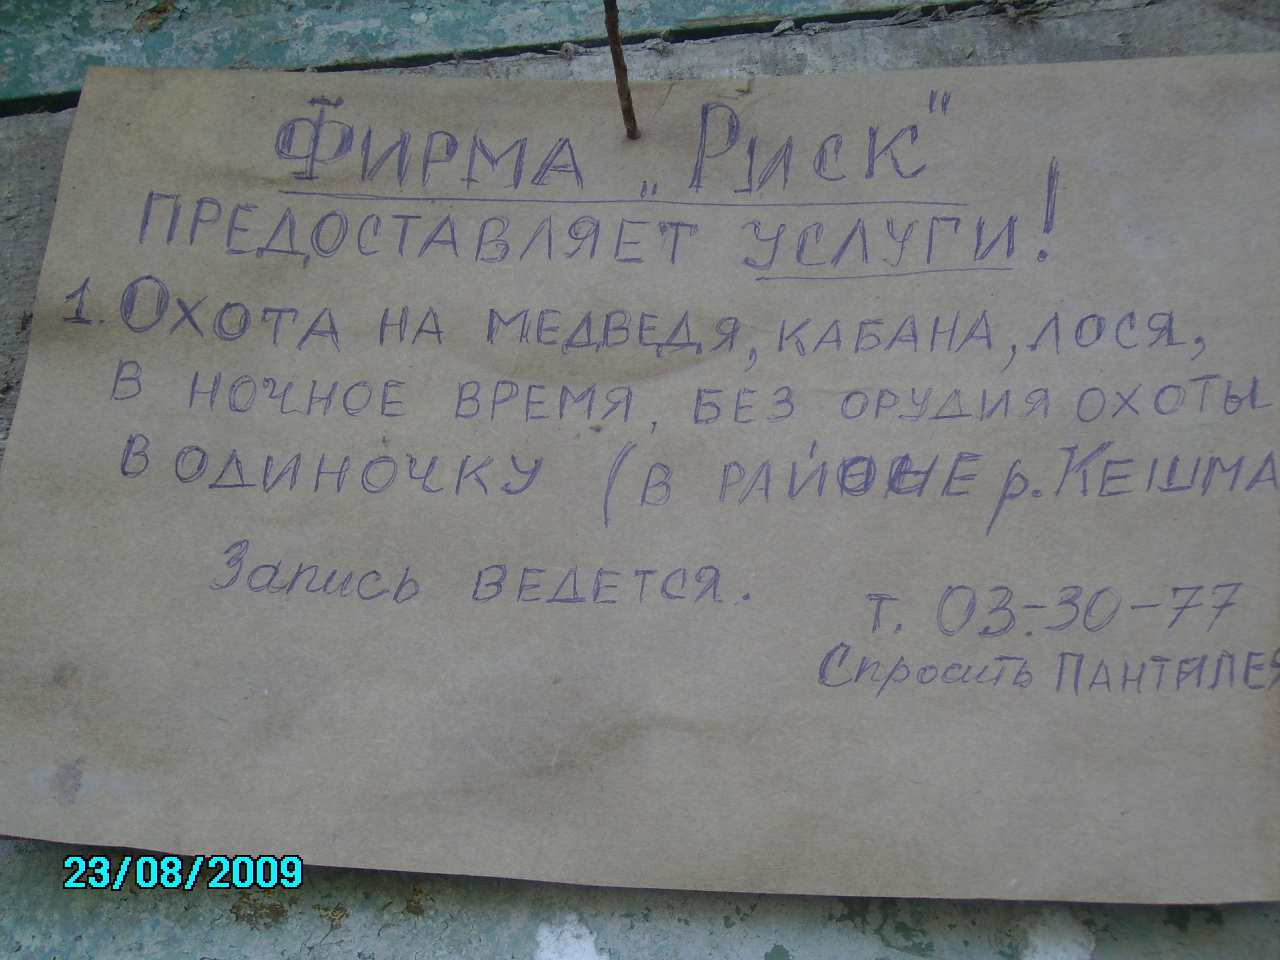 ФИРМА „РИСК"
ПРЕДОСТАВЛЯЕТ УСЛУГИ!
1. ОХОТА НА МЕДВЕДЯ, КАБАНА, ЛОСЯ,
В НОЧНОЕ ВРЕМЯ, БЕЗ ОРУДИЯ ОХОТЫ
В ОДИНОЧКУ (В РАЙОНЕ р. КЕШМА
Запись ВЕДЕТСЯ.
т. 03-30-77
Спросить ПАНТЕЛЕЯ
23/08/2009